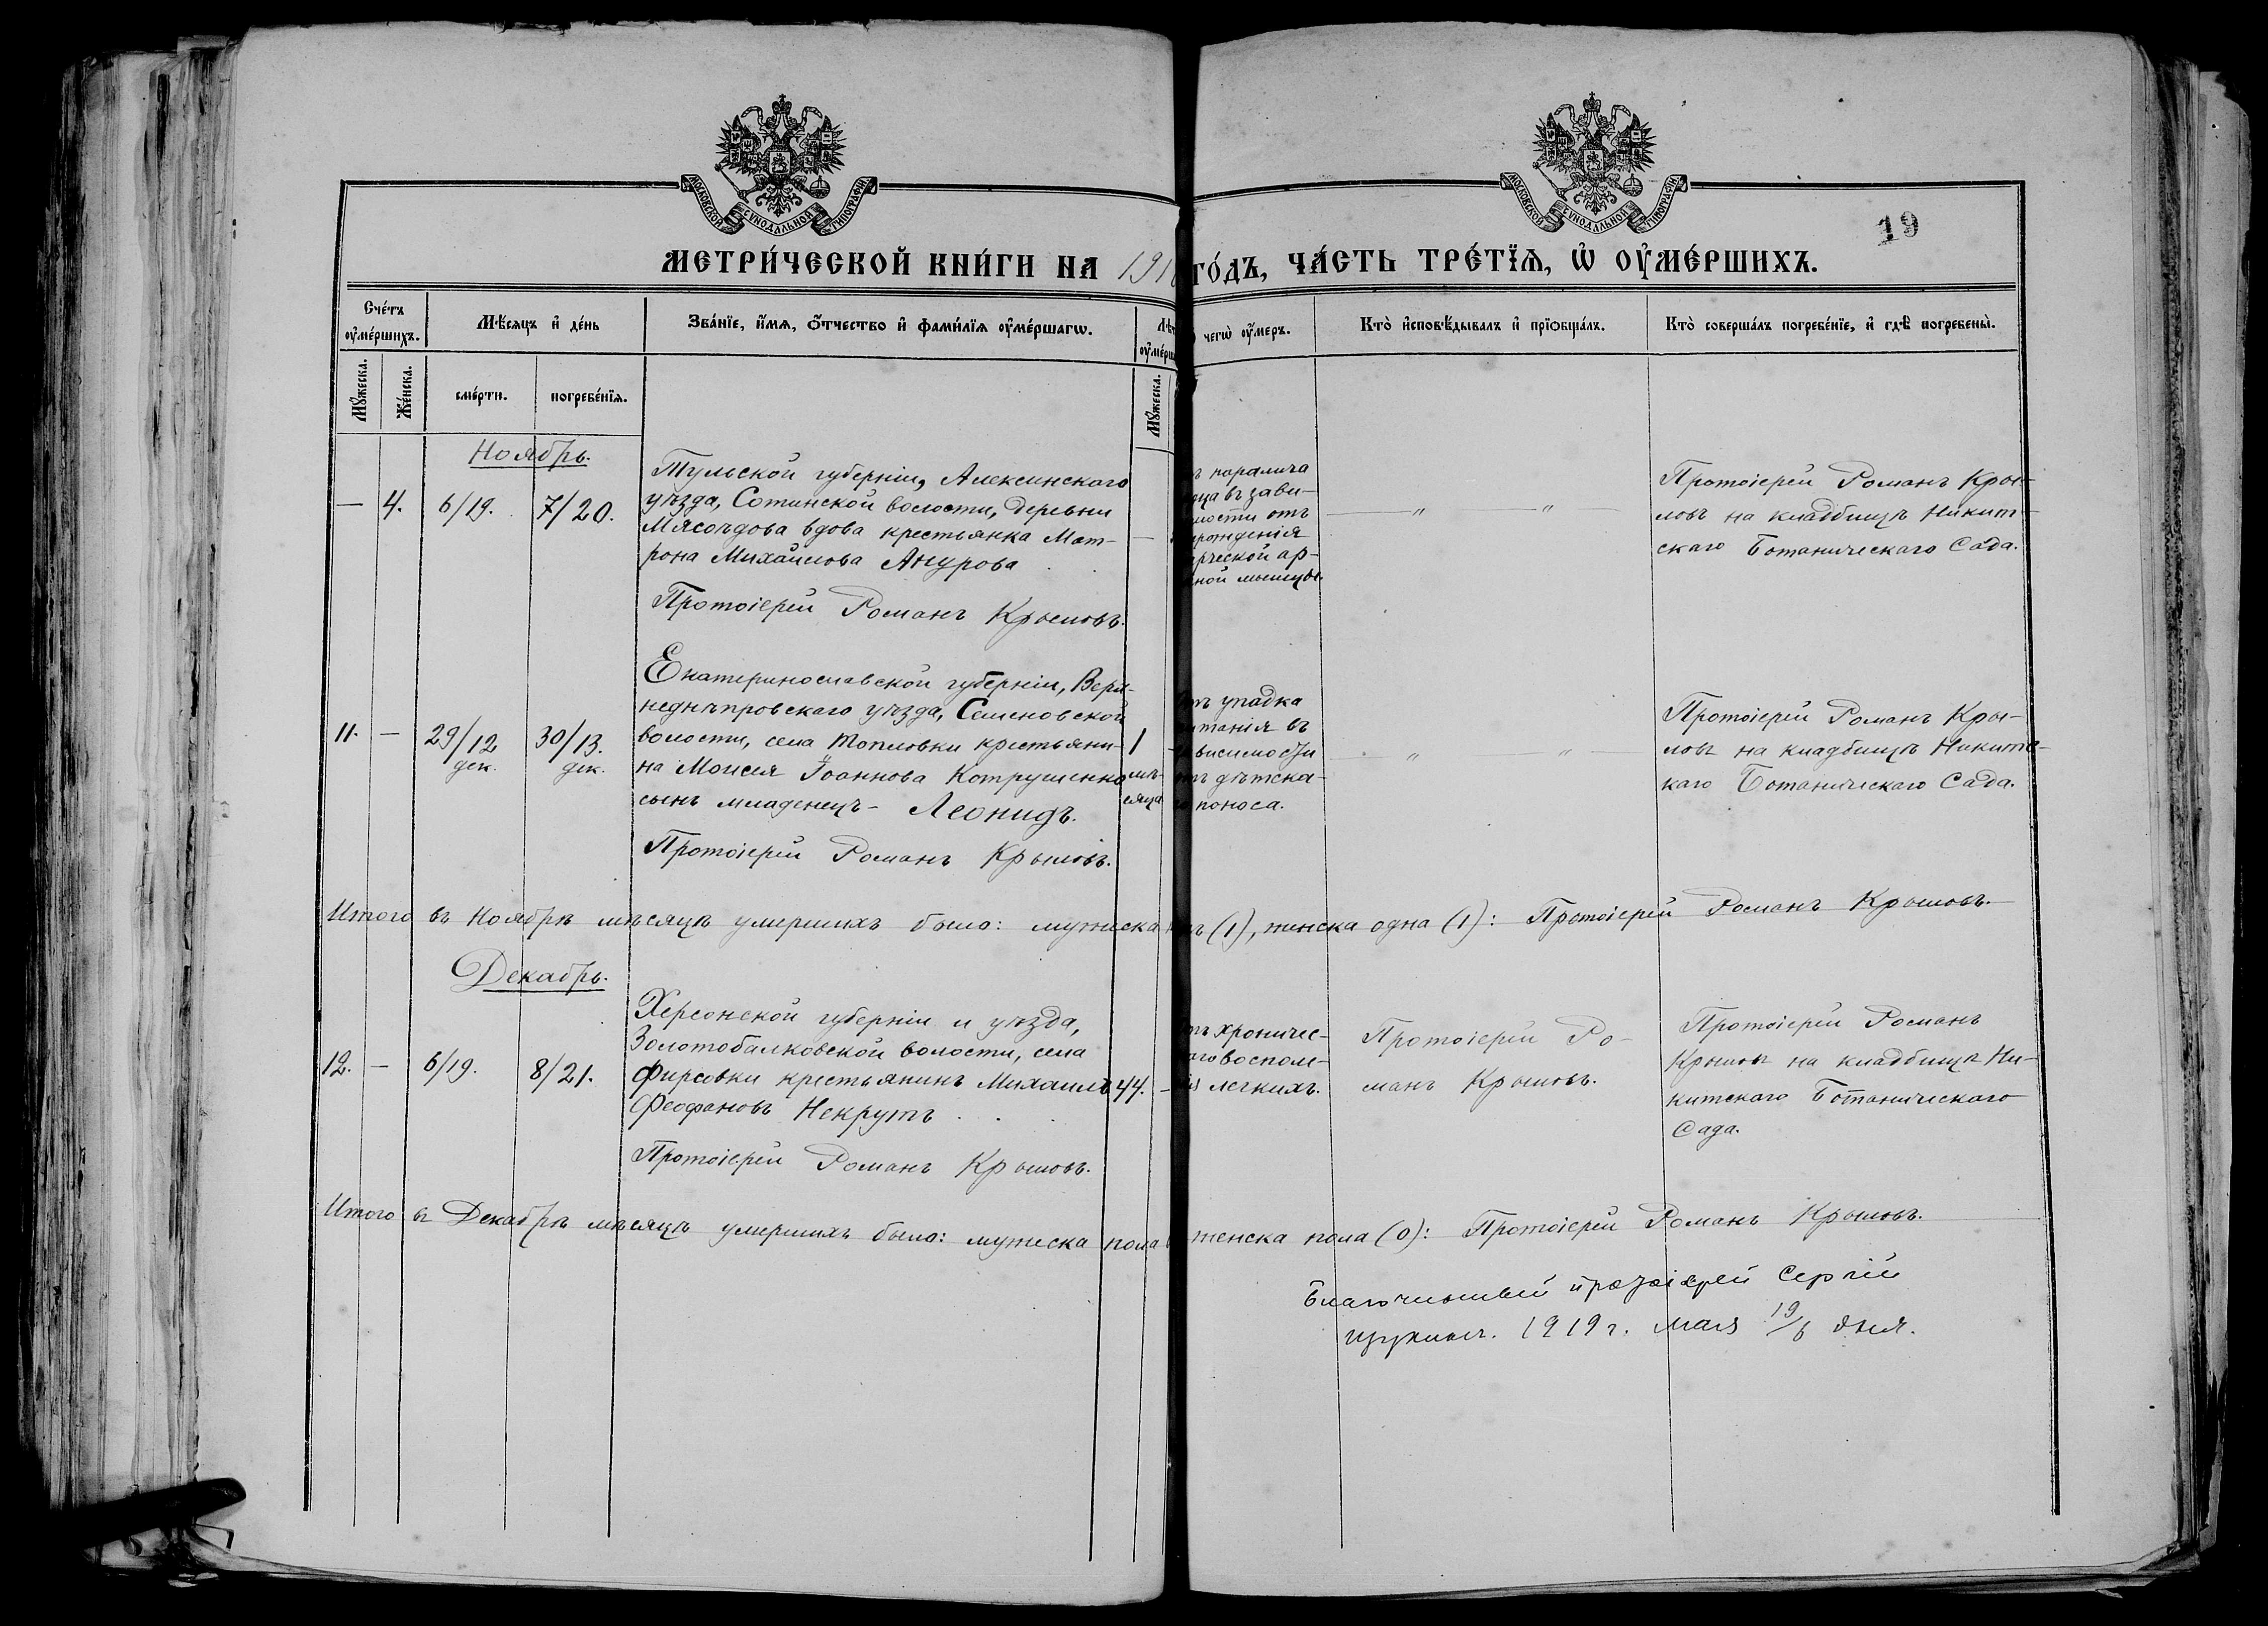 МОСКОВСКОЙ СѴНОДАЛЬНОЙ ТИПОГРАФІИ
МОСКОВСКОЙ СѴНОДАЛЬНОЙ ТИПОГРАФІИ
19
МЕТРИ́ЧЕСКОЙ КНИ́ГИ НА 191
ГО́ДЪ, ЧА́СТЬ ТРЕ́ТЇѦ, Ѡ҆ ОУ҆МЕ́РШИХЪ.
Сче́тъ оу҆ме́ршихъ.
Мѣ́сѧцъ и҆ де́нь
Зва́нїе, и҆́мѧ, ѻ҆́тчество и҆ фами́лїѧ оу҆ме́ршагѡ.
чегѡ̀ оу҆́меръ.
Кто̀ и҆сповѣ́дывалъ и҆ прїѡбща́лъ.
Кто̀ соверша́лъ погребе́нїе, и҆ гдѣ̀ погребены̀.
Мꙋ́жеска.
Же́нска.
сме́рти.
погребе́нїѧ.
Мꙋ́жеска.
Ноябрь.
— 4. 6/19. 7/20.
Тульской губерніи, Алексинскаго
уѣзда, Сотинской волости, деревни
Мясоѣдова вдова крестьянка Мат-
рона Михайлова Анурова
Протоіерей Романъ Крыловъ.
паралича
въ зави-
мости отъ
рождения
рческой ар-
ной мышцы.
— " — " —
Протоіерей Романъ Кры-
ловъ на кладбищѣ Никит-
скаго Ботаническаго Сада.
11. — 29/12 дек. 30/13. дек.
Екатеринославской губерніи, Верх-
недпѣпровскаго уѣзда, Семеновской
волости, села Топловки крестьяни-
на Моисея Іоаннова Котрушенко
сынъ младенецъ - Леонидъ.
Протоіерей Романъ Крыловъ.
1 мѣ-
сяца
упадка
питанія въ
висимости
дѣтска-
поноса.
" "
Протоіерей Романъ Кры-
ловъ на кладбищѣ Никитс-
каго Ботаническаго Сада.
Итого въ Ноябрѣ мѣсяцѣ умершихъ было: мужеска (1), женска одна (1): Протоіерей Романъ Крыловъ.
Декабрь.
12. — 6/19. 8/21.
Херсонской губерніи и уѣзда,
Золотобалковской волости, села
Фирсовки крестьянинъ Михаилъ
Феофановъ Некрутъ
Протоіерей Романъ Крыловъ.
44. —
хроничес-
воспале-
легкихъ.
Протоіерей Ро-
манъ Крыловъ.
Протоіерей Романъ
Крыловъ на кладбищѣ Ни-
китскаго Ботаническаго
Сада.
Итого въ Декабрѣ мѣсяцѣ умершихъ было: мужеска пола женска пола (0): Протоіерей Романъ Крыловъ.
Благочинный протоіерей Сергій
Щукинъ. 1919 г. 19/6 дня.